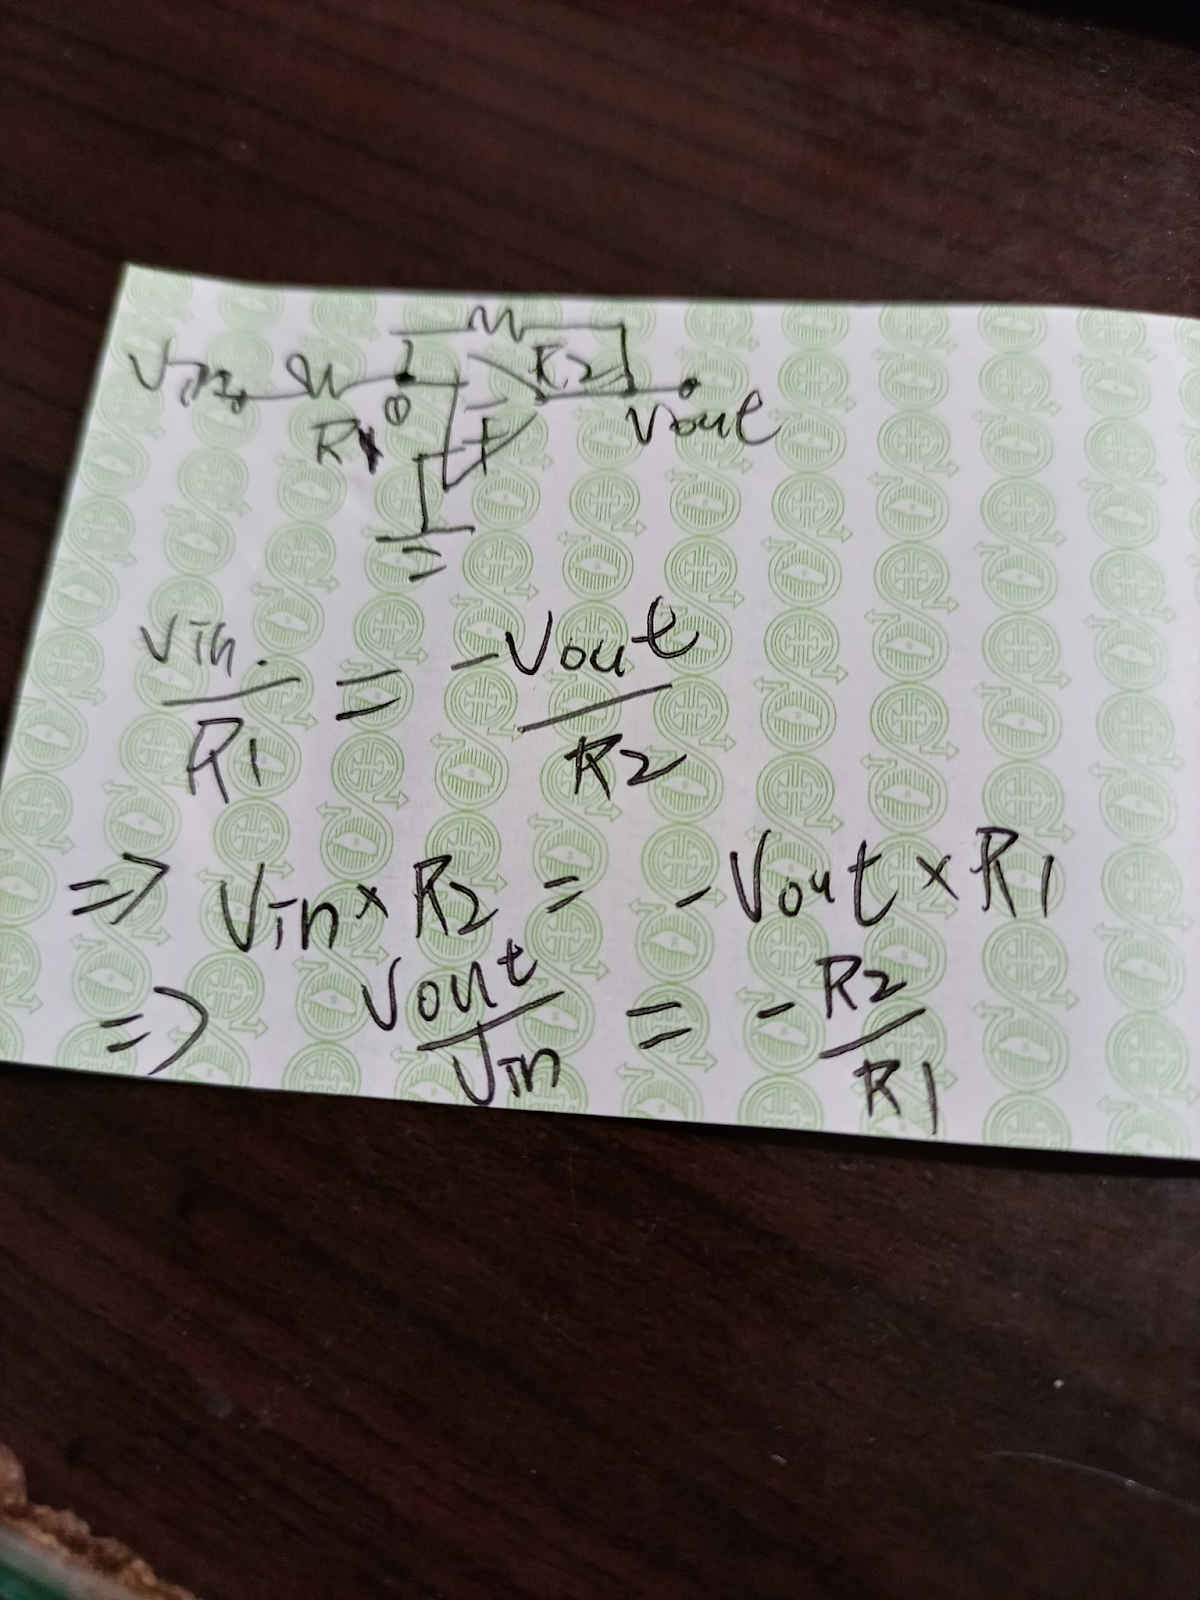 Vin R1 R2 Vout
- +
Vin / R1 = -Vout / R2
⇒ Vin × R2 = -Vout × R1
⇒ Vout / Vin = -R2 / R1